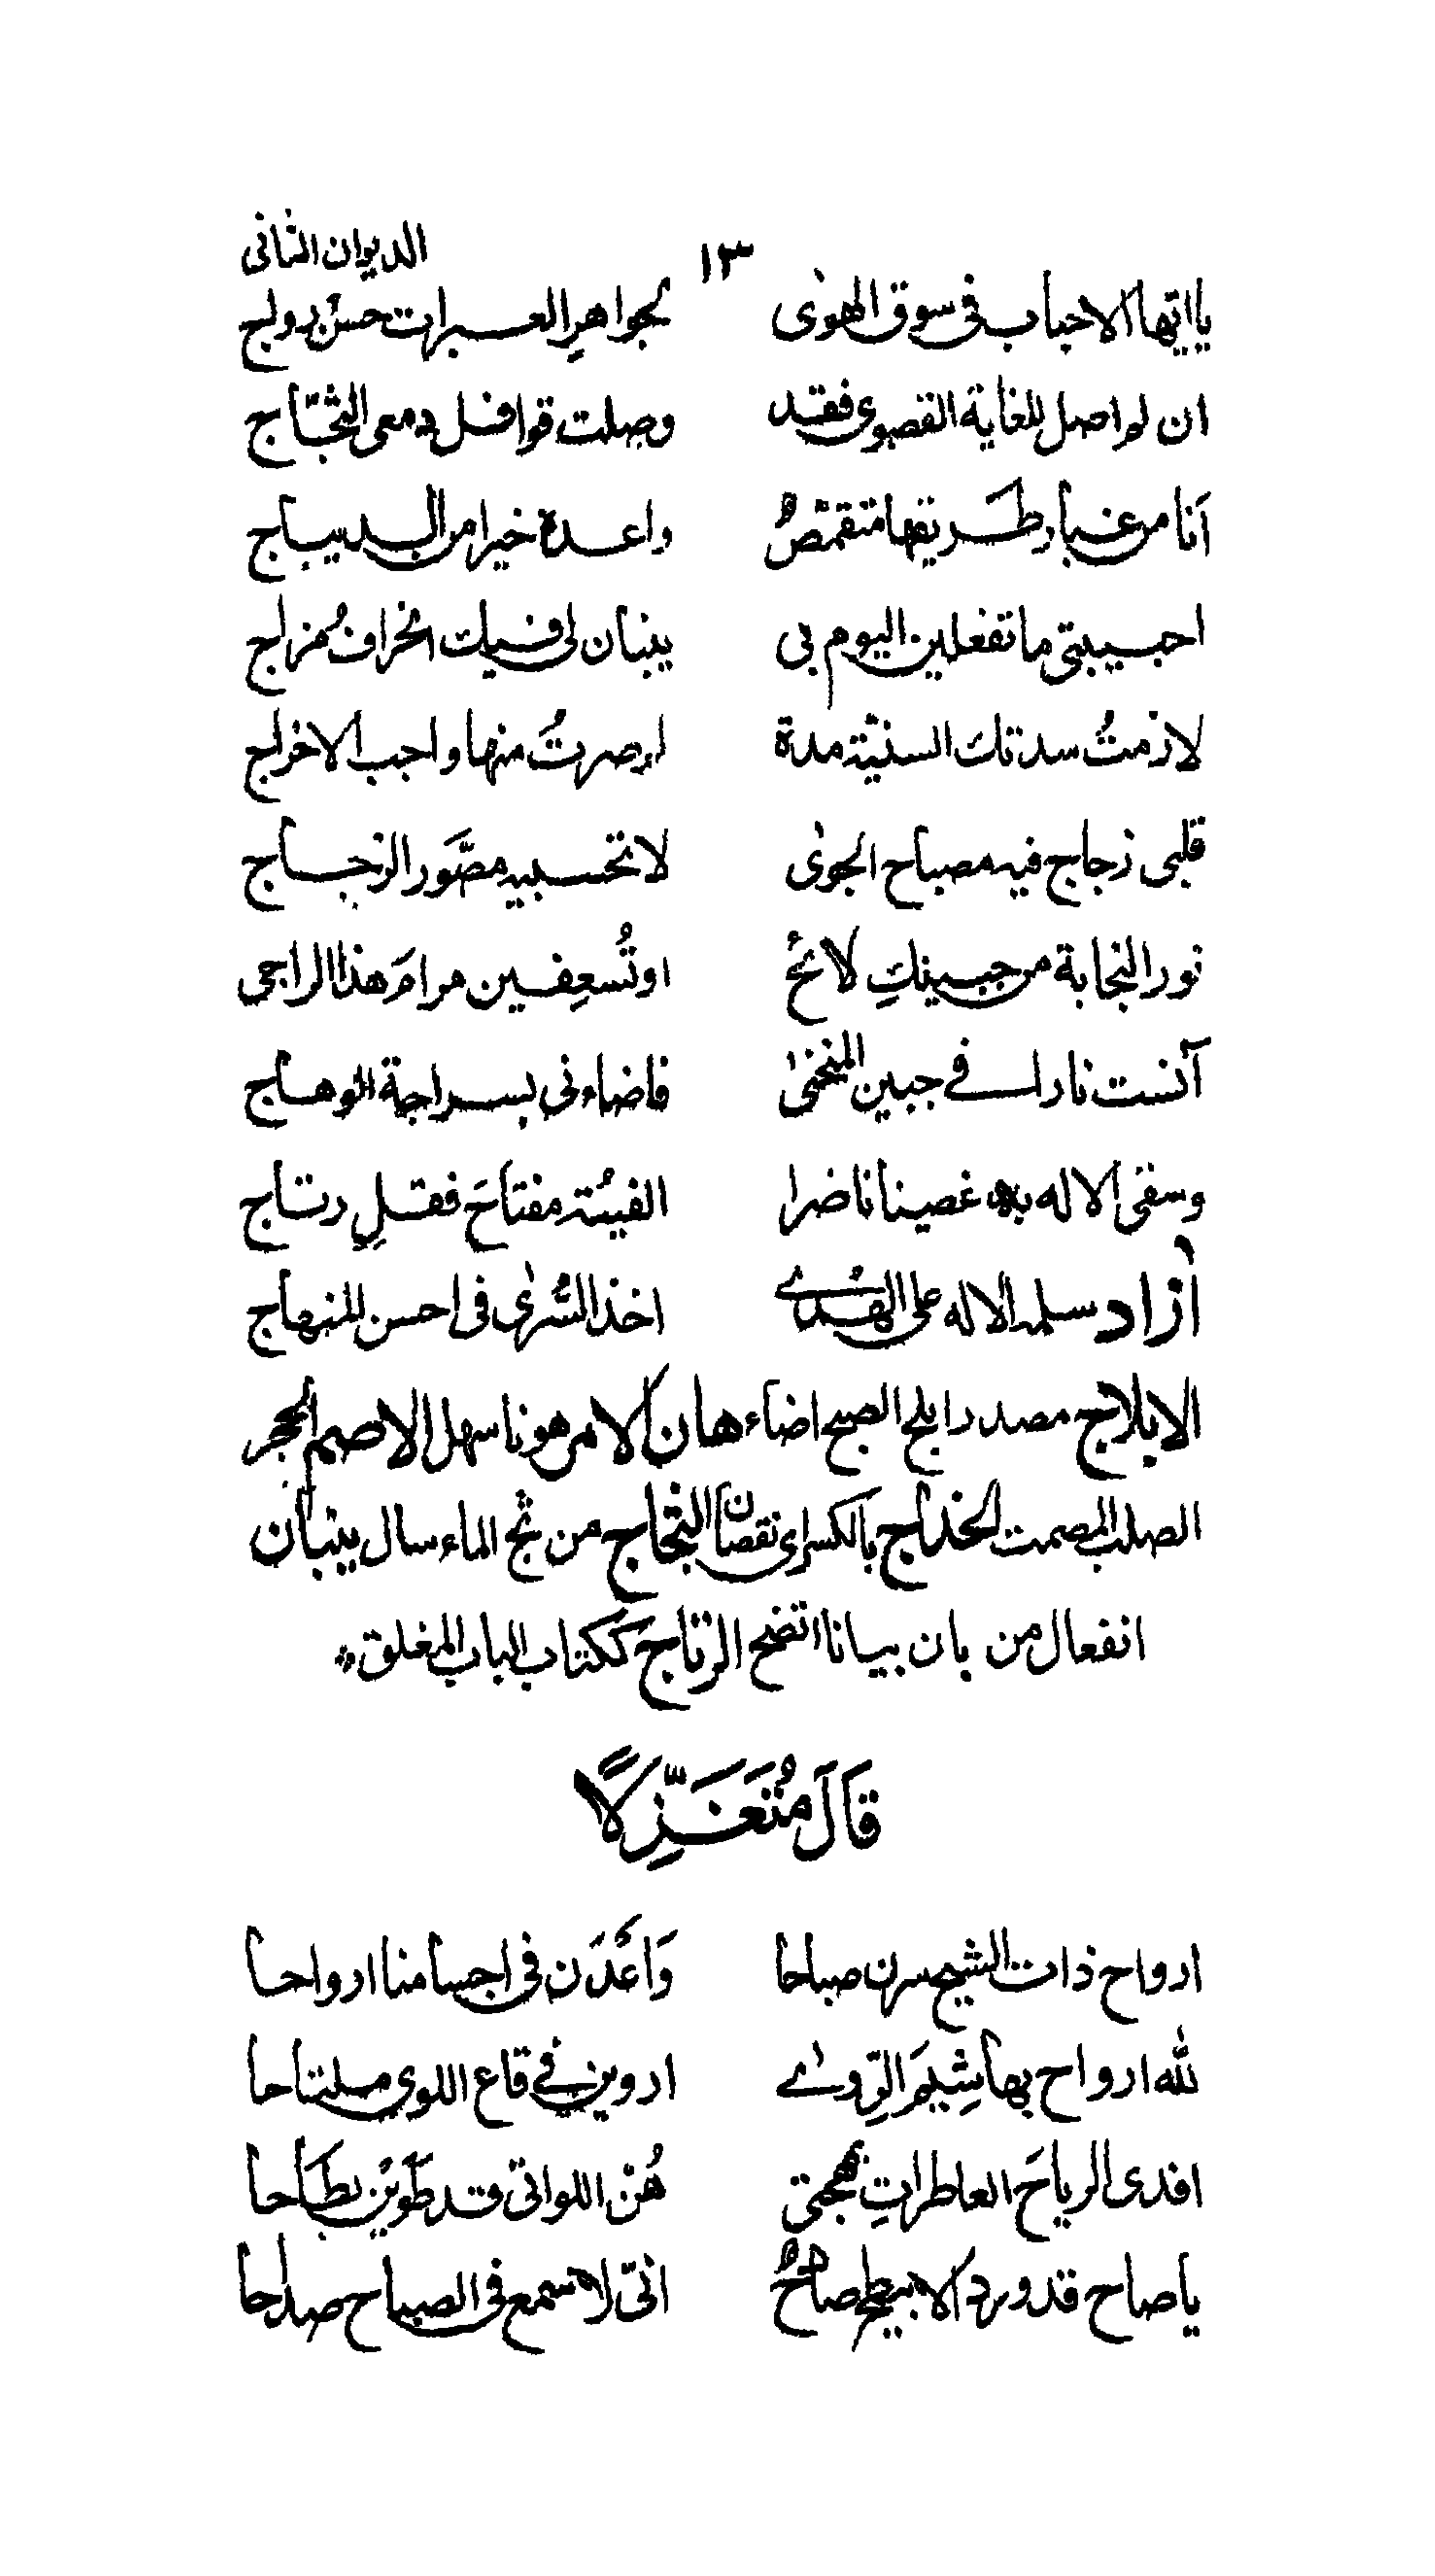 الديوان الثاني
١٣
يا ايها الاحباب فى سوق الهوٰى لجواهرِ العبرات حسنُ رواج
ان لم اصل للغاية القصوى فقد وصلت قوافل دمعى الثجّاج
اَنا من غبار طريقها متقمصٌ واعده خيرا من الديباج
احبيبتى ما تفعلين اليوم بى ينبان لى فيك انحرافُ مزاج
لازمتُ سدتك السنيّة مدة ام صرتُ منها واجب الاخراج
قلبى زجاج فيه مصباح الجوٰى لا تحسبيه مصَّور الزجاج
نور النجابة من جبينكِ لائحٌ اوتُسعِفين مرامَ هذا الراجى
آنست نارا فے جبين المنحنٰى فاضاءنى بسراجة الوهاج
وسقى الاله به غصينا ناضرا الفيتُه مفتاحَ فقلِ رتاج
اٰزاد سلمه الاله على الهُدٰے اخذ السُّرٰى فى احسن المنهاج
الابلاج مصدر ابلج الصبح اضاء هان الامر هونا سهل الاصم الحجر
الصلب المصمت الخداج بالكسراى نقصان الثجاج من ثج الماء سال ينبان
انفعال من بان بيانا اتضح الرتاج ككتاب الباب المغلق
قَالَ مُتَغَزِّلًا
ارواح ذات الشيح سرن صباحا وَاَعَدْن فى اجسامنا ارواحا
لله ارواح بها شِيَم الرِّوٰے اروين فے قاع اللوى ملتاحا
افدى الرياحَ العاطراتِ بمهجتى هُنّ اللواتى قد طَوَيْن بطَاحا
يا صاح قد ورد الابيطح صادحٌ انّى لاسمع فى الصباح صداحا